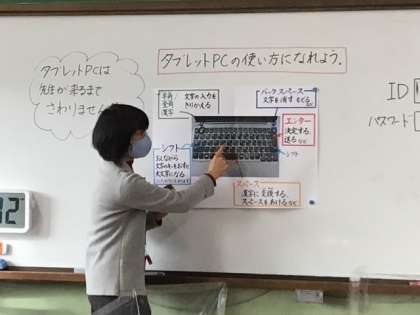 タブレットPCの使い方になれよう.
タブレットPCは
先生が来るまで
さわりません
半角/
全角
漢字
文字の入力を
きりかえる
バックスペース
文字を消す もどる
など
エンター
決定する
送る など
シフト
シフト
おしながら
大文字になる
スペース
漢字に変換する
スペースをあける など
ID
パスワード